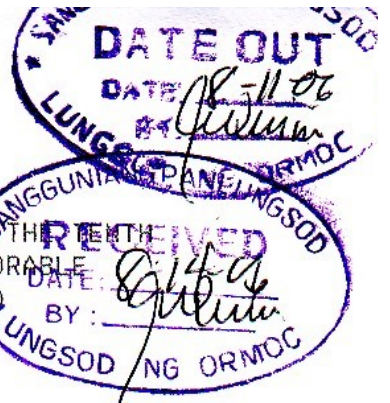 DATE OUT
DATE: 8-11-06
BY
LUNGSOD
ORMOC
SANGGUNIANG PANLUNGSOD
THE TENTH
RECEIVED
ORABLE
DATE: 8-14-06
BY:
LUNGSOD NG ORMOC